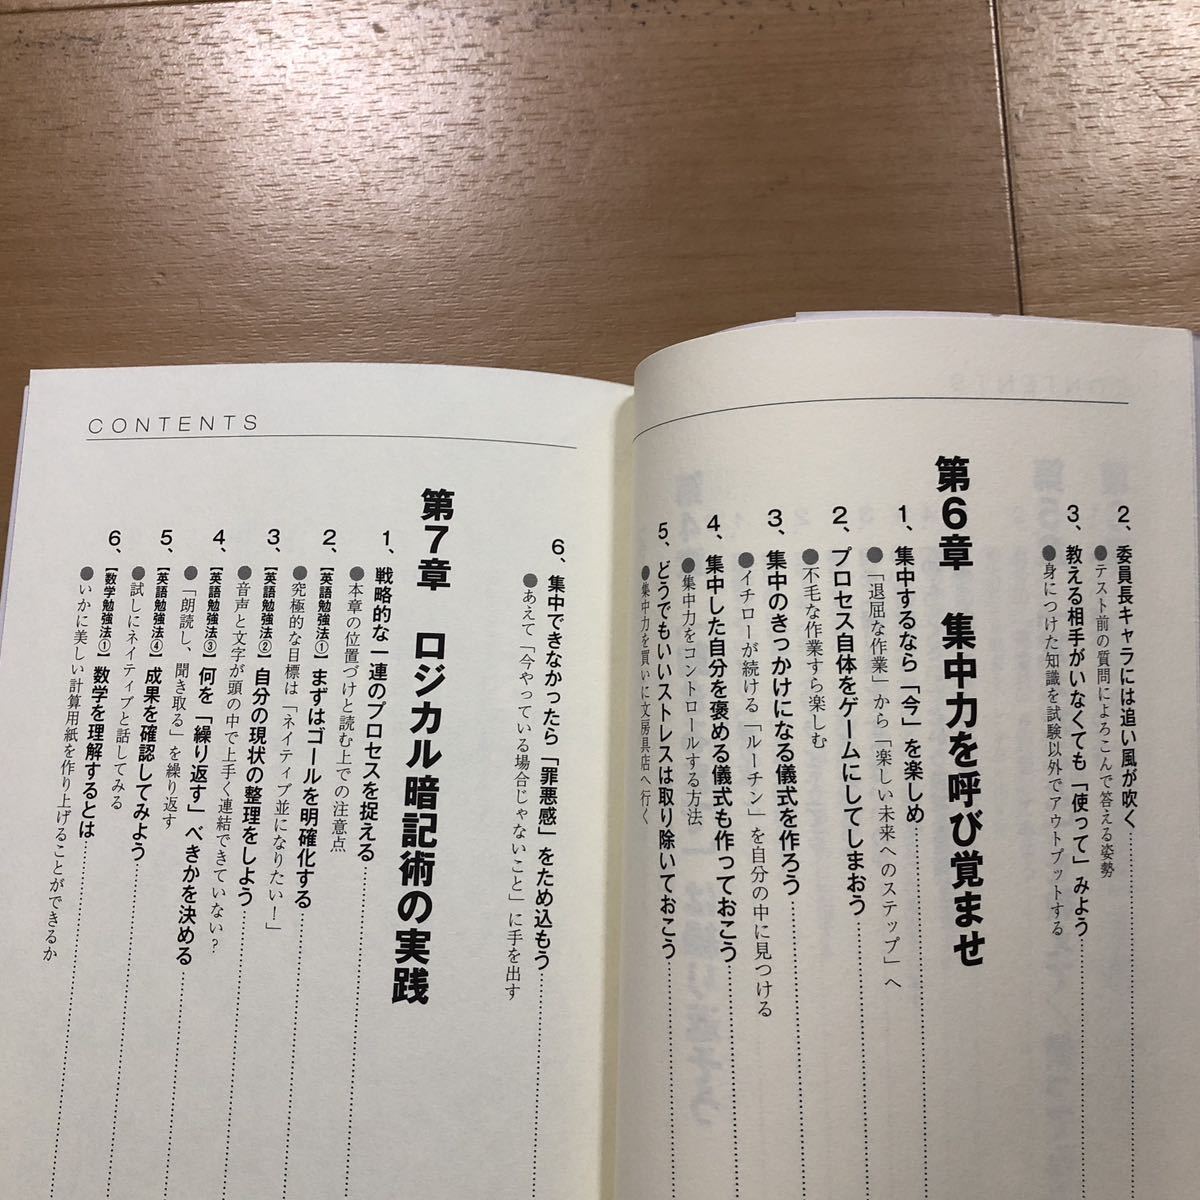 2、委員長キャラには追い風が吹く
●テスト前の質問によろこんで答える姿勢
3、教える相手がいなくても「使って」みよう
●身につけた知識を試験以外でアウトプットする
第6章 集中力を呼び覚ませ
1、集中するなら「今」を楽しめ
●「退屈な作業」から「楽しい未来へのステップ」へ
2、プロセス自体をゲームにしてしまおう
●不毛な作業すら楽しむ
3、集中のきっかけになる儀式を作ろう
●イチローが続ける「ルーチン」を自分の中に見つける
4、集中した自分を褒める儀式も作っておこう
●集中力をコントロールする方法
5、どうでもいいストレスは取り除いておこう
●集中力を買いに文房具店へ行く
CONTENTS
6、集中できなかったら「罪悪感」をため込もう
●あえて「今やっている場合じゃないこと」に手を出す
第7章 ロジカル暗記術の実践
1、戦略的な一連のプロセスを捉える
●本章の位置づけと読む上での注意点
2、【英語勉強法①】まずはゴールを明確化する
●究極的な目標は「ネイティブ並になりたい！」
3、【英語勉強法②】自分の現状の整理をしよう
●音声と文字が頭の中で上手く連結できていない？
4、【英語勉強法③】何を「繰り返す」べきかを決める
●「朗読し、聞き取る」を繰り返す
5、【英語勉強法④】成果を確認してみよう
●試しにネイティブと話してみる
6、【数学勉強法①】数学を理解するとは
●いかに美しい計算用紙を作り上げることができるか